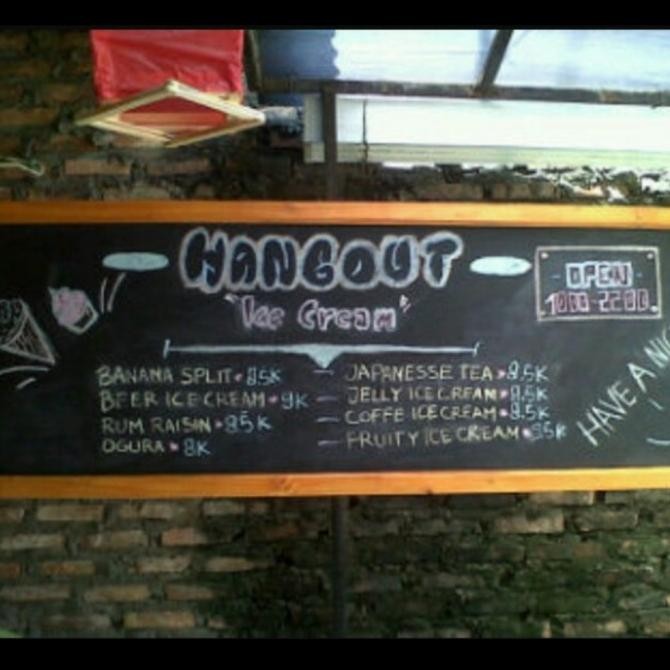 HANGOUT
"Ice Cream"
OPEN
1000-2200
BANANA SPLIT • 8.5K
BEER ICE CREAM • 9K
RUM RAISIN • 8.5K
OGURA • 8K
JAPANESSE TEA • 8.5K
JELLY ICE CREAM • 8.5K
COFFE ICE CREAM • 8.5K
FRUITY ICE CREAM • 8.5K
HAVE A NIC